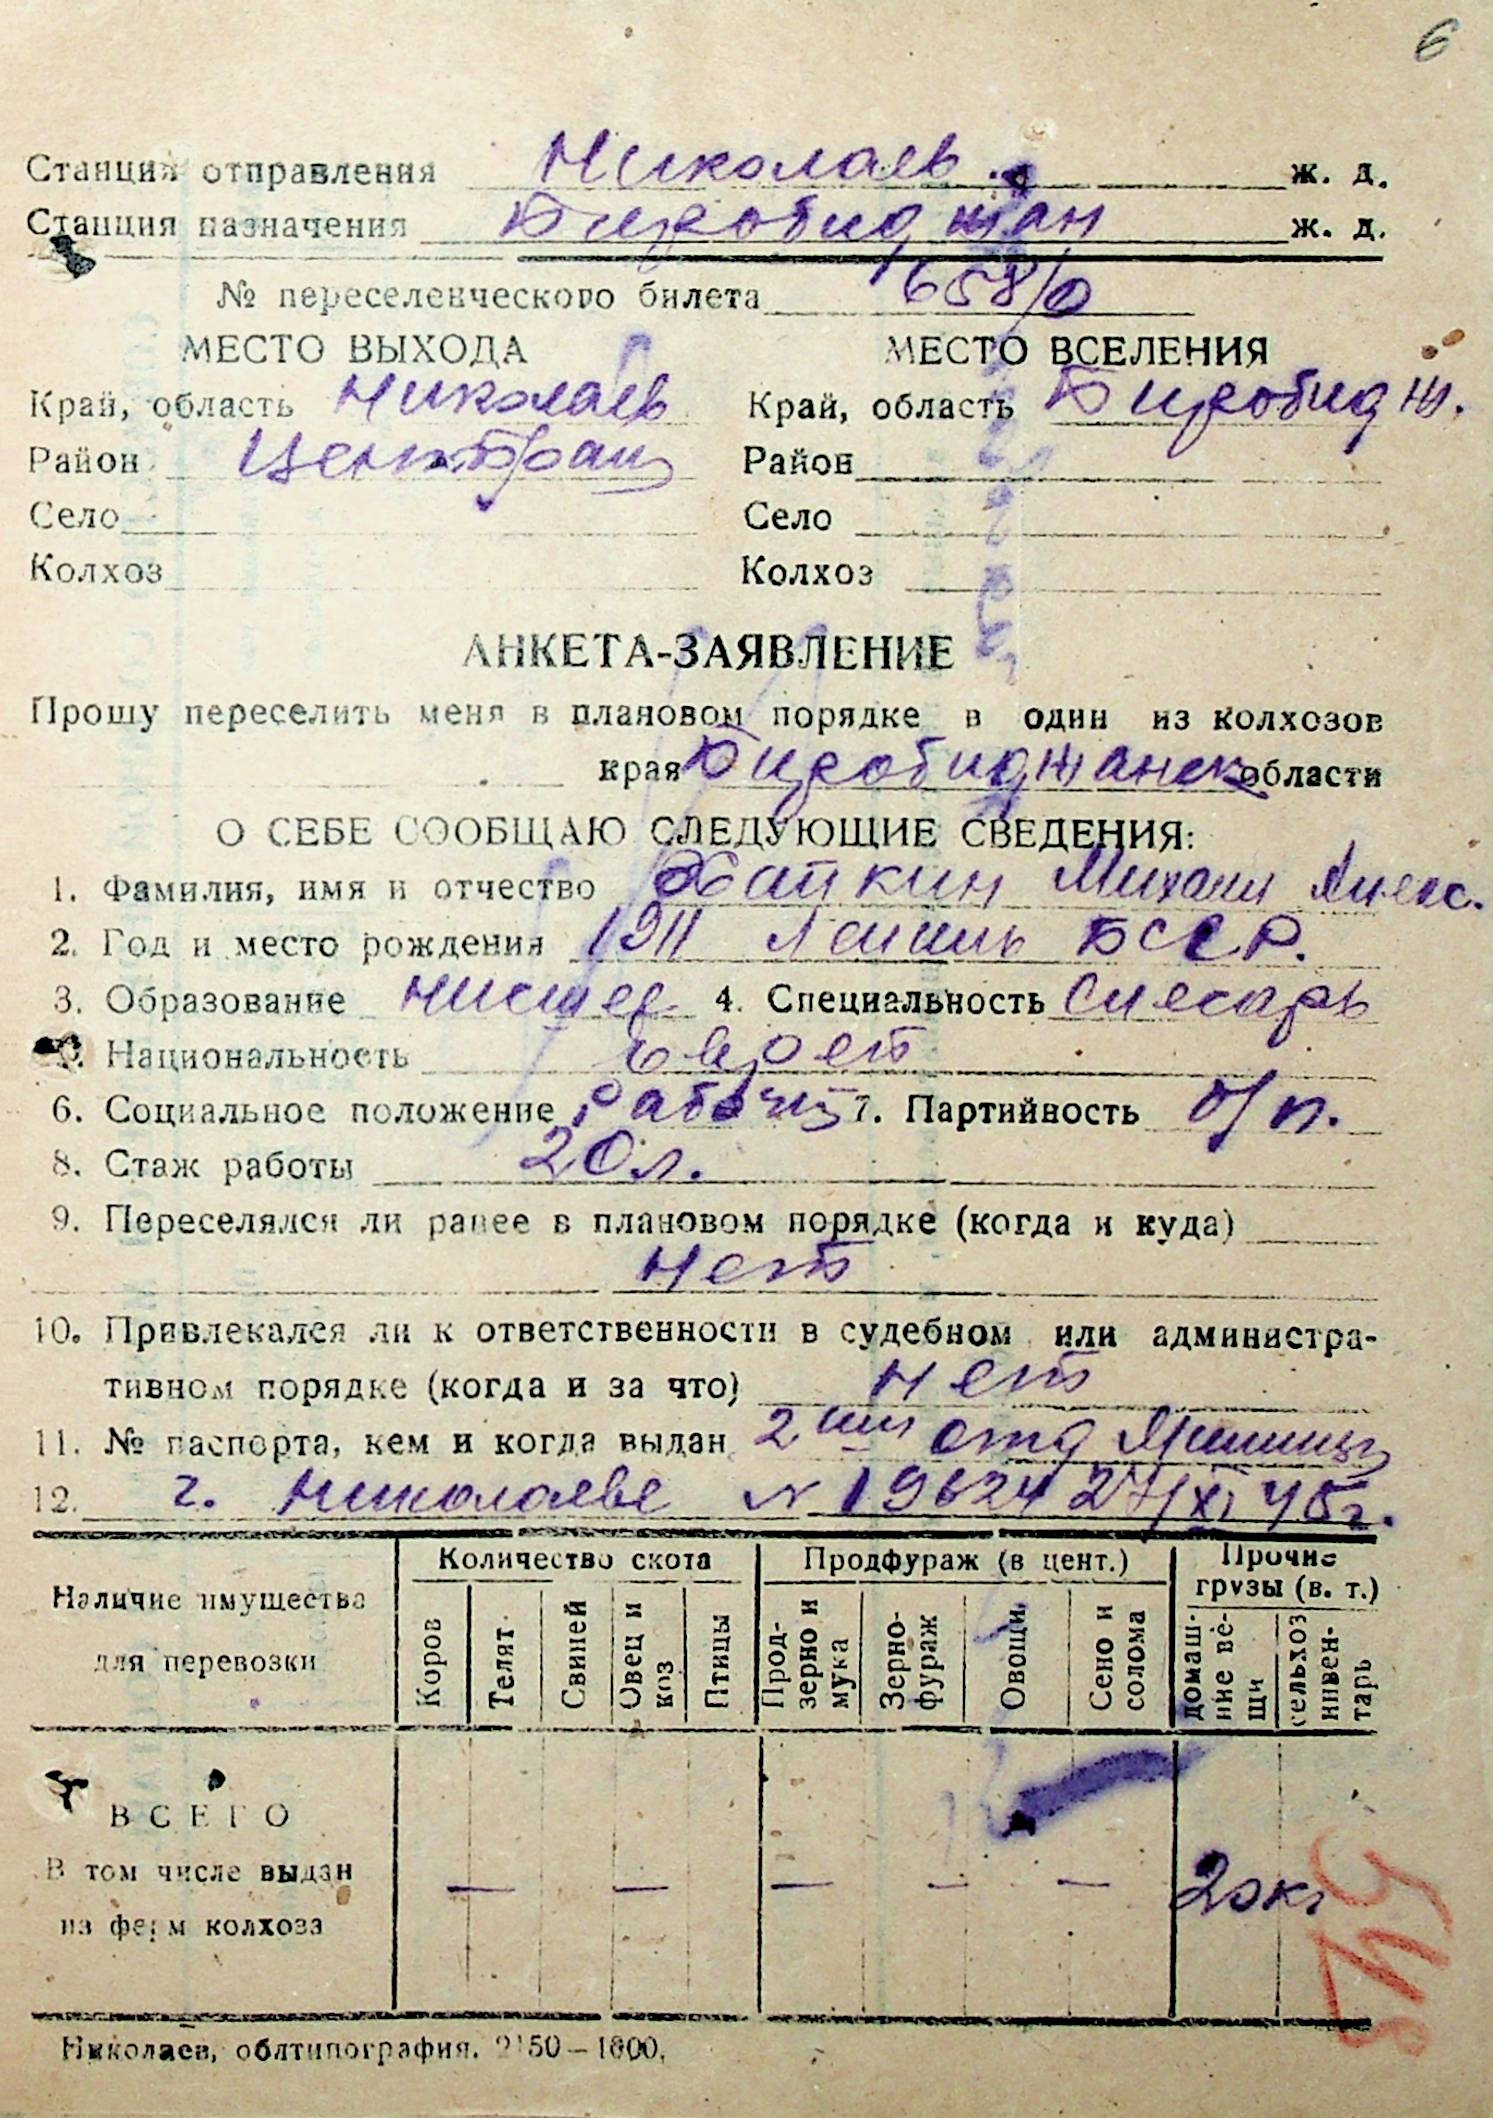 6
Станция отправления Николаев ж. д.
Станция назначения Биробиджан ж. д.
№ переселенческого билета 1658/0
МЕСТО ВЫХОДА МЕСТО ВСЕЛЕНИЯ
Край, область Николаев Край, область Биробидж.
Район Централ Район
Село Село
Колхоз Колхоз
АНКЕТА-ЗАЯВЛЕНИЕ
Прошу переселить меня в плановом порядке в один из колхозов
края Биробиджанск области
О СЕБЕ СООБЩАЮ СЛЕДУЮЩИЕ СВЕДЕНИЯ:
1. Фамилия, имя и отчество Хайкин Михаил Алекс.
2. Год и место рождения 1911 БССР.
3. Образование нисшее 4. Специальность Слесарь
5. Национальность Еврей
6. Социальное положение Рабочий 7. Партийность б/п.
8. Стаж работы 20 л.
9. Переселялся ли ранее в плановом порядке (когда и куда)
нет
10. Привлекался ли к ответственности в судебном или администра-
тивном порядке (когда и за что) нет
11. № паспорта, кем и когда выдан 2 отд Милиции
12. г. Николаеве № 19624 27/XI 45г.
Наличие имущества для перевозки
Количество скота Продфураж (в цент.) Прочие грузы (в. т.)
Коров Телят Свиней Овец и коз Птицы Прод-зерно и мука Зерно-фураж Овощи Сено и солома домаш-ние ве-щи сельхоз инвен-тарь
ВСЕГО
В том числе выдан
из ферм колхоза — — — — — 20кг
Николаев, облтипография. 2150—1800.